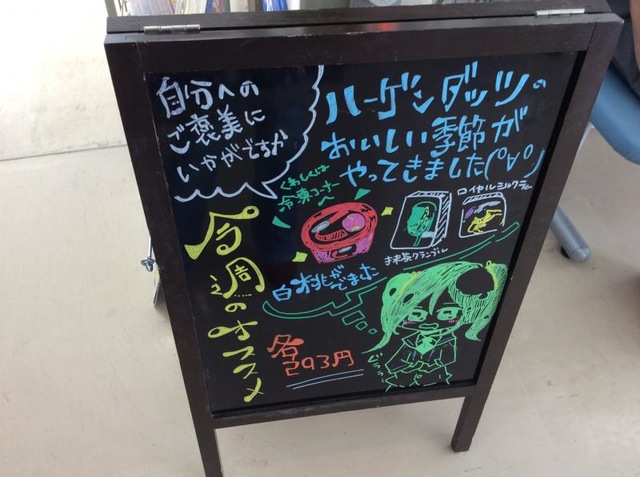 自分への
ご褒美に
いかがですか
ハーゲンダッツの
おいしい季節が
やってきました(°∀°)
くわしくは
冷凍コーナー
へ
ロイヤルミルクティー
抹茶クランブル
白桃がでました
今週のオススメ
各
293円